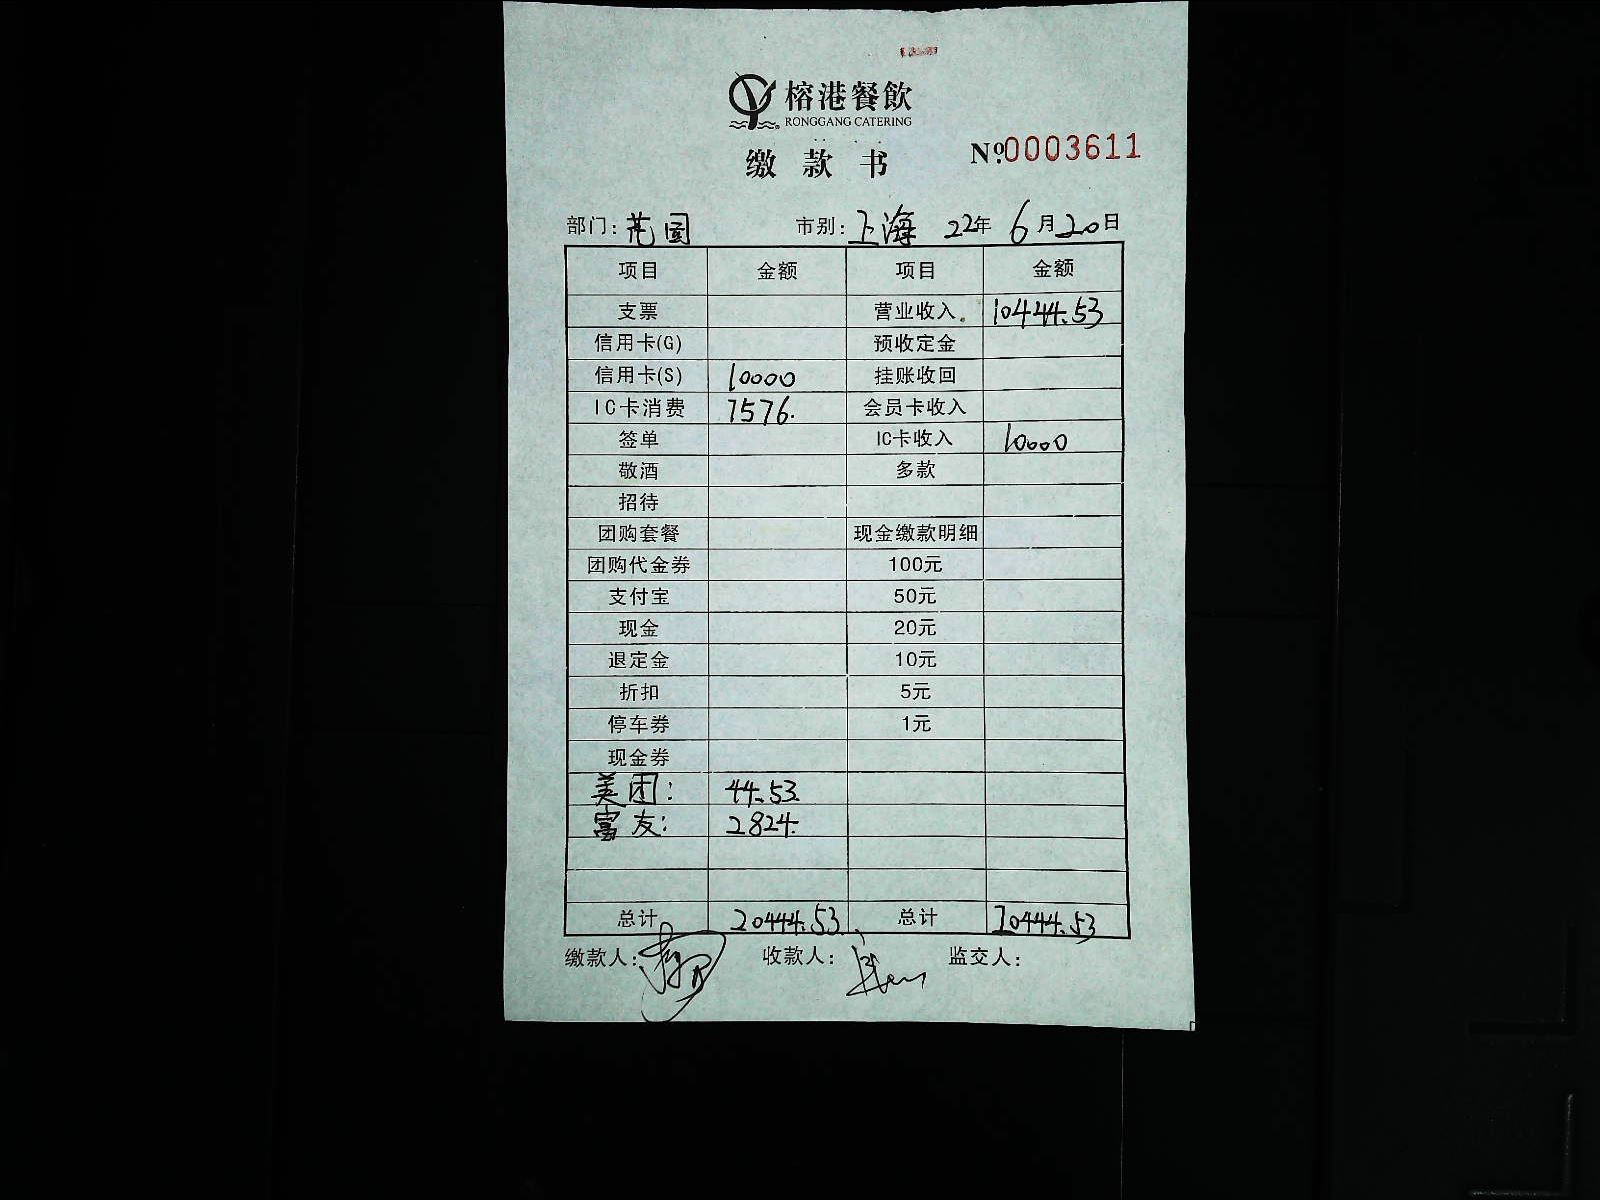 榕港餐飲
RONGGANG CATERING
缴款书
№0003611
部门：范围 市别：上海 22年6月20日
项目 金额 项目 金额
支票 营业收入 10444.53
信用卡(G) 预收定金
信用卡(S) 10000 挂账收回
IC卡消费 7576. 会员卡收入
签单 IC卡收入 10000
敬酒 多款
招待
团购套餐 现金缴款明细
团购代金券 100元
支付宝 50元
现金 20元
退定金 10元
折扣 5元
停车券 1元
现金券
美团： 44.53
富友： 2824.
总计 20444.53 总计 20444.53
缴款人： 收款人： 监交人：